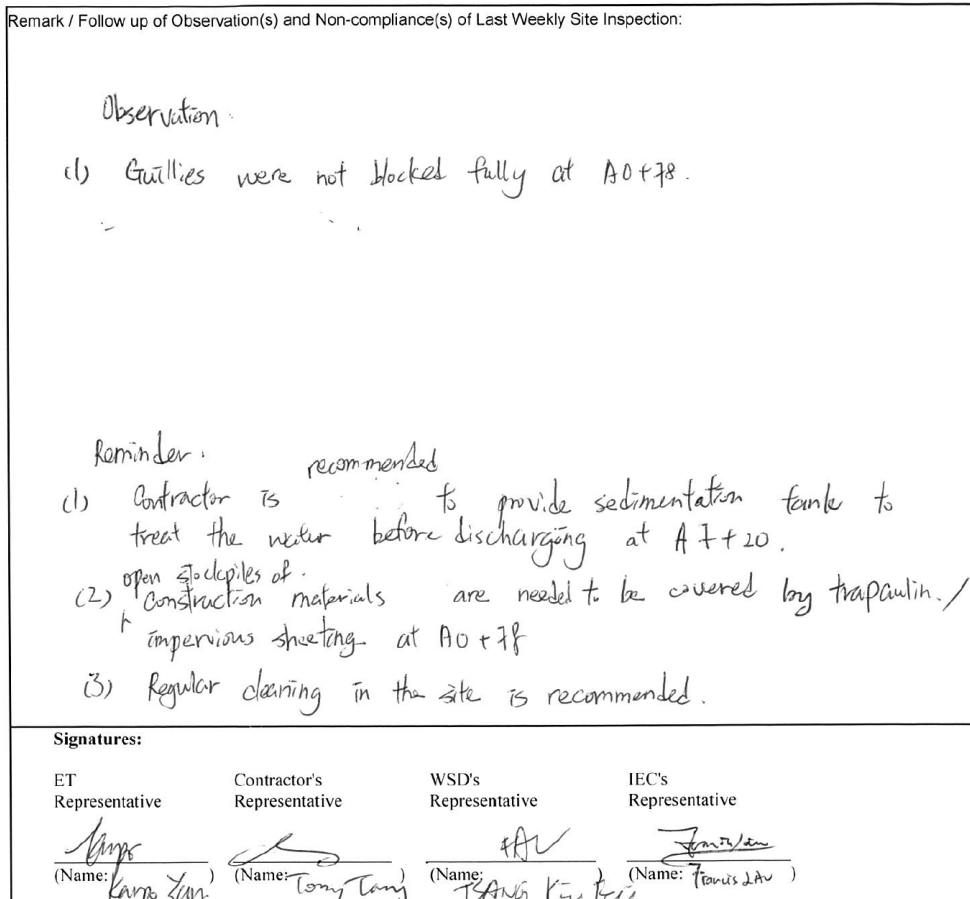 Remark / Follow up of Observation(s) and Non-compliance(s) of Last Weekly Site Inspection:
Observation:
(1) Guillies were not blocked fully at A0+78.
Reminder:
recommended
(1) Contractor is to provide sedimentation tank to
treat the water before discharging at A7+20.
open stockpiles of
(2) construction materials are needed to be covered by trapaulin /
impervious sheeting at A0+78
(3) Regular cleaning in the site is recommended.
Signatures:
ET Contractor's WSD's IEC's
Representative Representative Representative Representative
(Name: ) (Name: Tony ) (Name: TSANG ) (Name: Francis LAU )